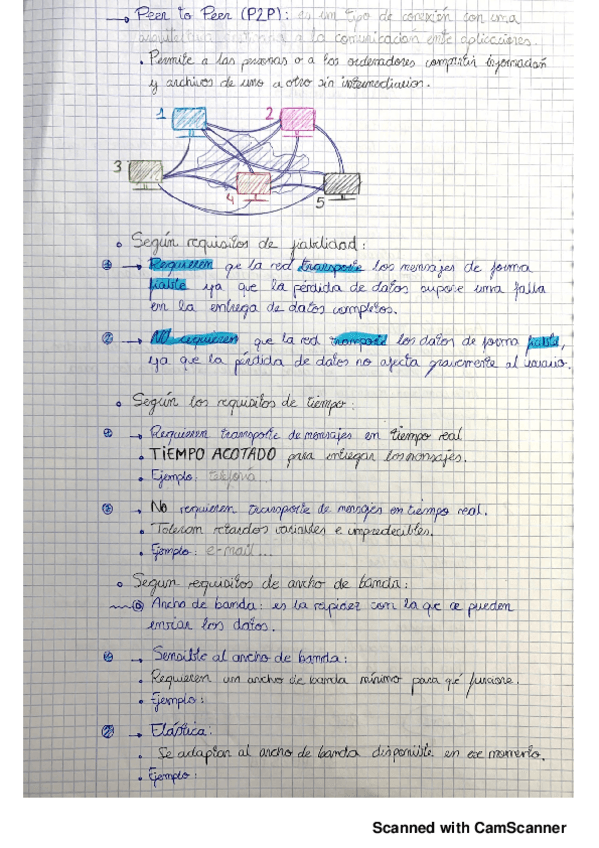 → Peer to Peer (P2P): es un tipo de conexión con una
arquitectura a la comunicación entre aplicaciones.
• Permite a las personas o a los ordenadores compartir información
y archivos de uno a otro sin intermediarios.
1 2
3 4 5
• Según requisitos de fiabilidad:
① → Requieren qe la red transporte los mensajes de forma
fiable ya que la pérdida de datos supone una falla
en la entrega de datos completos.
② → NO requieren que la red transporte los datos de forma fiable,
ya que la pérdida de datos no afecta gravemente al usuario.
• Según los requisitos de tiempo:
① → Requieren transporte de mensajes en tiempo real
• TIEMPO ACOTADO para entregar los mensajes.
• Ejemplo: telefonía...
② → No requieren transporte de mensajes en tiempo real.
• Toleran retardos variables e impredecibles.
• Ejemplo: e-mail...
• Segun requisitos de ancho de banda:
Ancho de banda: es la rapidez con la qe se pueden
enviar los datos.
① → Sensible al ancho de banda:
• Requieren un ancho de banda mínimo para qé funcione.
• Ejemplo:
② → Elástica:
• Se adaptan al ancho de banda disponible en ese momento.
• Ejemplo:
Scanned with CamScanner